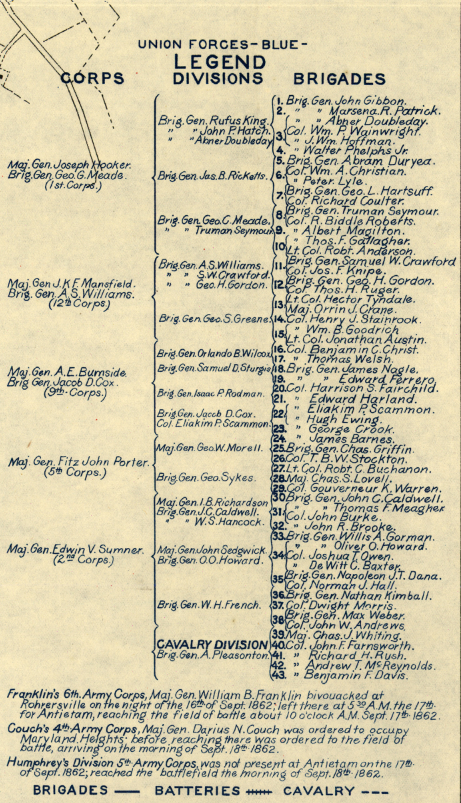 UNION FORCES-BLUE-
LEGEND
CORPS
DIVISIONS
BRIGADES
Maj. Gen. Joseph Hooker.
Brig. Gen. Geo. G. Meade.
(1st. Corps.)
Maj. Gen. J.K.F. Mansfield.
Brig. Gen. A.S. Williams.
(12th Corps)
Maj. Gen. A.E. Burnside
Brig. Gen. Jacob D. Cox.
(9th Corps.)
Maj. Gen. Fitz John Porter.
(5th Corps.)
Maj. Gen. Edwin V. Sumner.
(2nd Corps.)
Brig. Gen. Rufus King.
" " John P. Hatch.
" " Abner Doubleday
Brig. Gen. Jas. B. Ricketts.
Brig. Gen. Geo. G. Meade.
" " Truman Seymour
Brig. Gen. A.S. Williams.
" " S.W. Crawford.
" " Geo. H. Gordon.
Brig. Gen. Geo. S. Greene
Brig. Gen. Orlando B. Wilcox
Brig. Gen. Samuel D. Sturgis
Brig. Gen. Isaac P. Rodman.
Brig. Gen. Jacob D. Cox.
Col. Eliakim P. Scammon.
Maj. Gen. Geo. W. Morell.
Brig. Gen. Geo. Sykes.
Maj. Gen. I.B. Richardson
Brig. Gen. J.C. Caldwell.
" " W.S. Hancock.
Maj. Gen. John Sedgwick
Brig. Gen. O.O. Howard.
Brig. Gen. W.H. French.
CAVALRY DIVISION
Brig. Gen. A. Pleasonton.
1. Brig. Gen. John Gibbon.
2. " " Marsena. R. Patrick.
" " Abner Doubleday.
3. Col. Wm. P. Wainwright.
" J. Wm. Hoffman.
4. " Walter Phelps Jr.
5. Brig. Gen. Abram Duryea.
6. Col. Wm. A. Christian.
" Peter Lyle.
7. Brig. Gen. Geo. L. Hartsuff.
Col. Richard Coulter.
8. Brig. Gen. Truman Seymour.
Col. R. Biddle Roberts.
9. " Albert Magilton.
10. " Thos. F. Gallagher.
Lt. Col. Robt. Anderson.
11. Brig. Gen. Samuel W. Crawford
Col. Jos. F. Knipe.
12. Brig. Gen. Geo. H. Gordon.
Col. Thos. H. Ruger.
13. Lt. Col. Hector Tyndale.
Maj. Orrin J. Crane.
14. Col. Henry J. Stainrook.
15. " Wm. B. Goodrich
Lt. Col. Jonathan Austin.
16. Col. Benjamin C. Christ.
17. " Thomas Welsh.
18. Brig. Gen. James Nagle.
19. " " Edward Ferrero
20. Col. Harrison S. Fairchild.
21. " Edward Harland.
22. " Eliakim P. Scammon.
" Hugh Ewing.
23. " George Crook.
24. " James Barnes.
25. Brig. Gen. Chas. Griffin.
26. Col. T.B.W. Stockton.
27. Lt. Col. Robt. C. Buchanon.
28. Maj. Chas. S. Lovell.
29. Col. Gouverneur K. Warren.
30. Brig. Gen. John C. Caldwell.
31. " " Thomas F. Meagher
Col. John Burke.
32. " John R. Brooke.
33. Brig. Gen. Willis A. Gorman.
" " Oliver O. Howard.
34. Col. Joshua T. Owen.
" De Witt C. Baxter.
35. Brig. Gen. Napoleon J.T. Dana.
Col. Norman J. Hall.
36. Brig. Gen. Nathan Kimball.
37. Col. Dwight Morris.
38. Brig. Gen. Max Weber.
Col. John W. Andrews.
39. Maj. Chas. J. Whiting.
40. Col. John F. Farnsworth.
41. " Richard H. Rush.
42. " Andrew T. McReynolds.
43. " Benjamin F. Davis.
Franklin's 6th. Army Corps, Maj. Gen. William B. Franklin bivouacked at
Rohrersville on the night of the 16th of Sept. 1862; left there at 5 30 A.M. the 17th.
for Antietam, reaching the field of battle about 10 o'clock A.M. Sept. 17th 1862.
Couch's 4th Army Corps, Maj. Gen. Darius N. Couch was ordered to occupy
Maryland Heights; before reaching there was ordered to the field of
battle, arriving on the morning of Sept. 18th 1862.
Humphrey's Division 5th Army Corps, was not present at Antietam on the 17th
of Sept. 1862; reached the battlefield the morning of Sept. 18th 1862.
BRIGADES BATTERIES CAVALRY